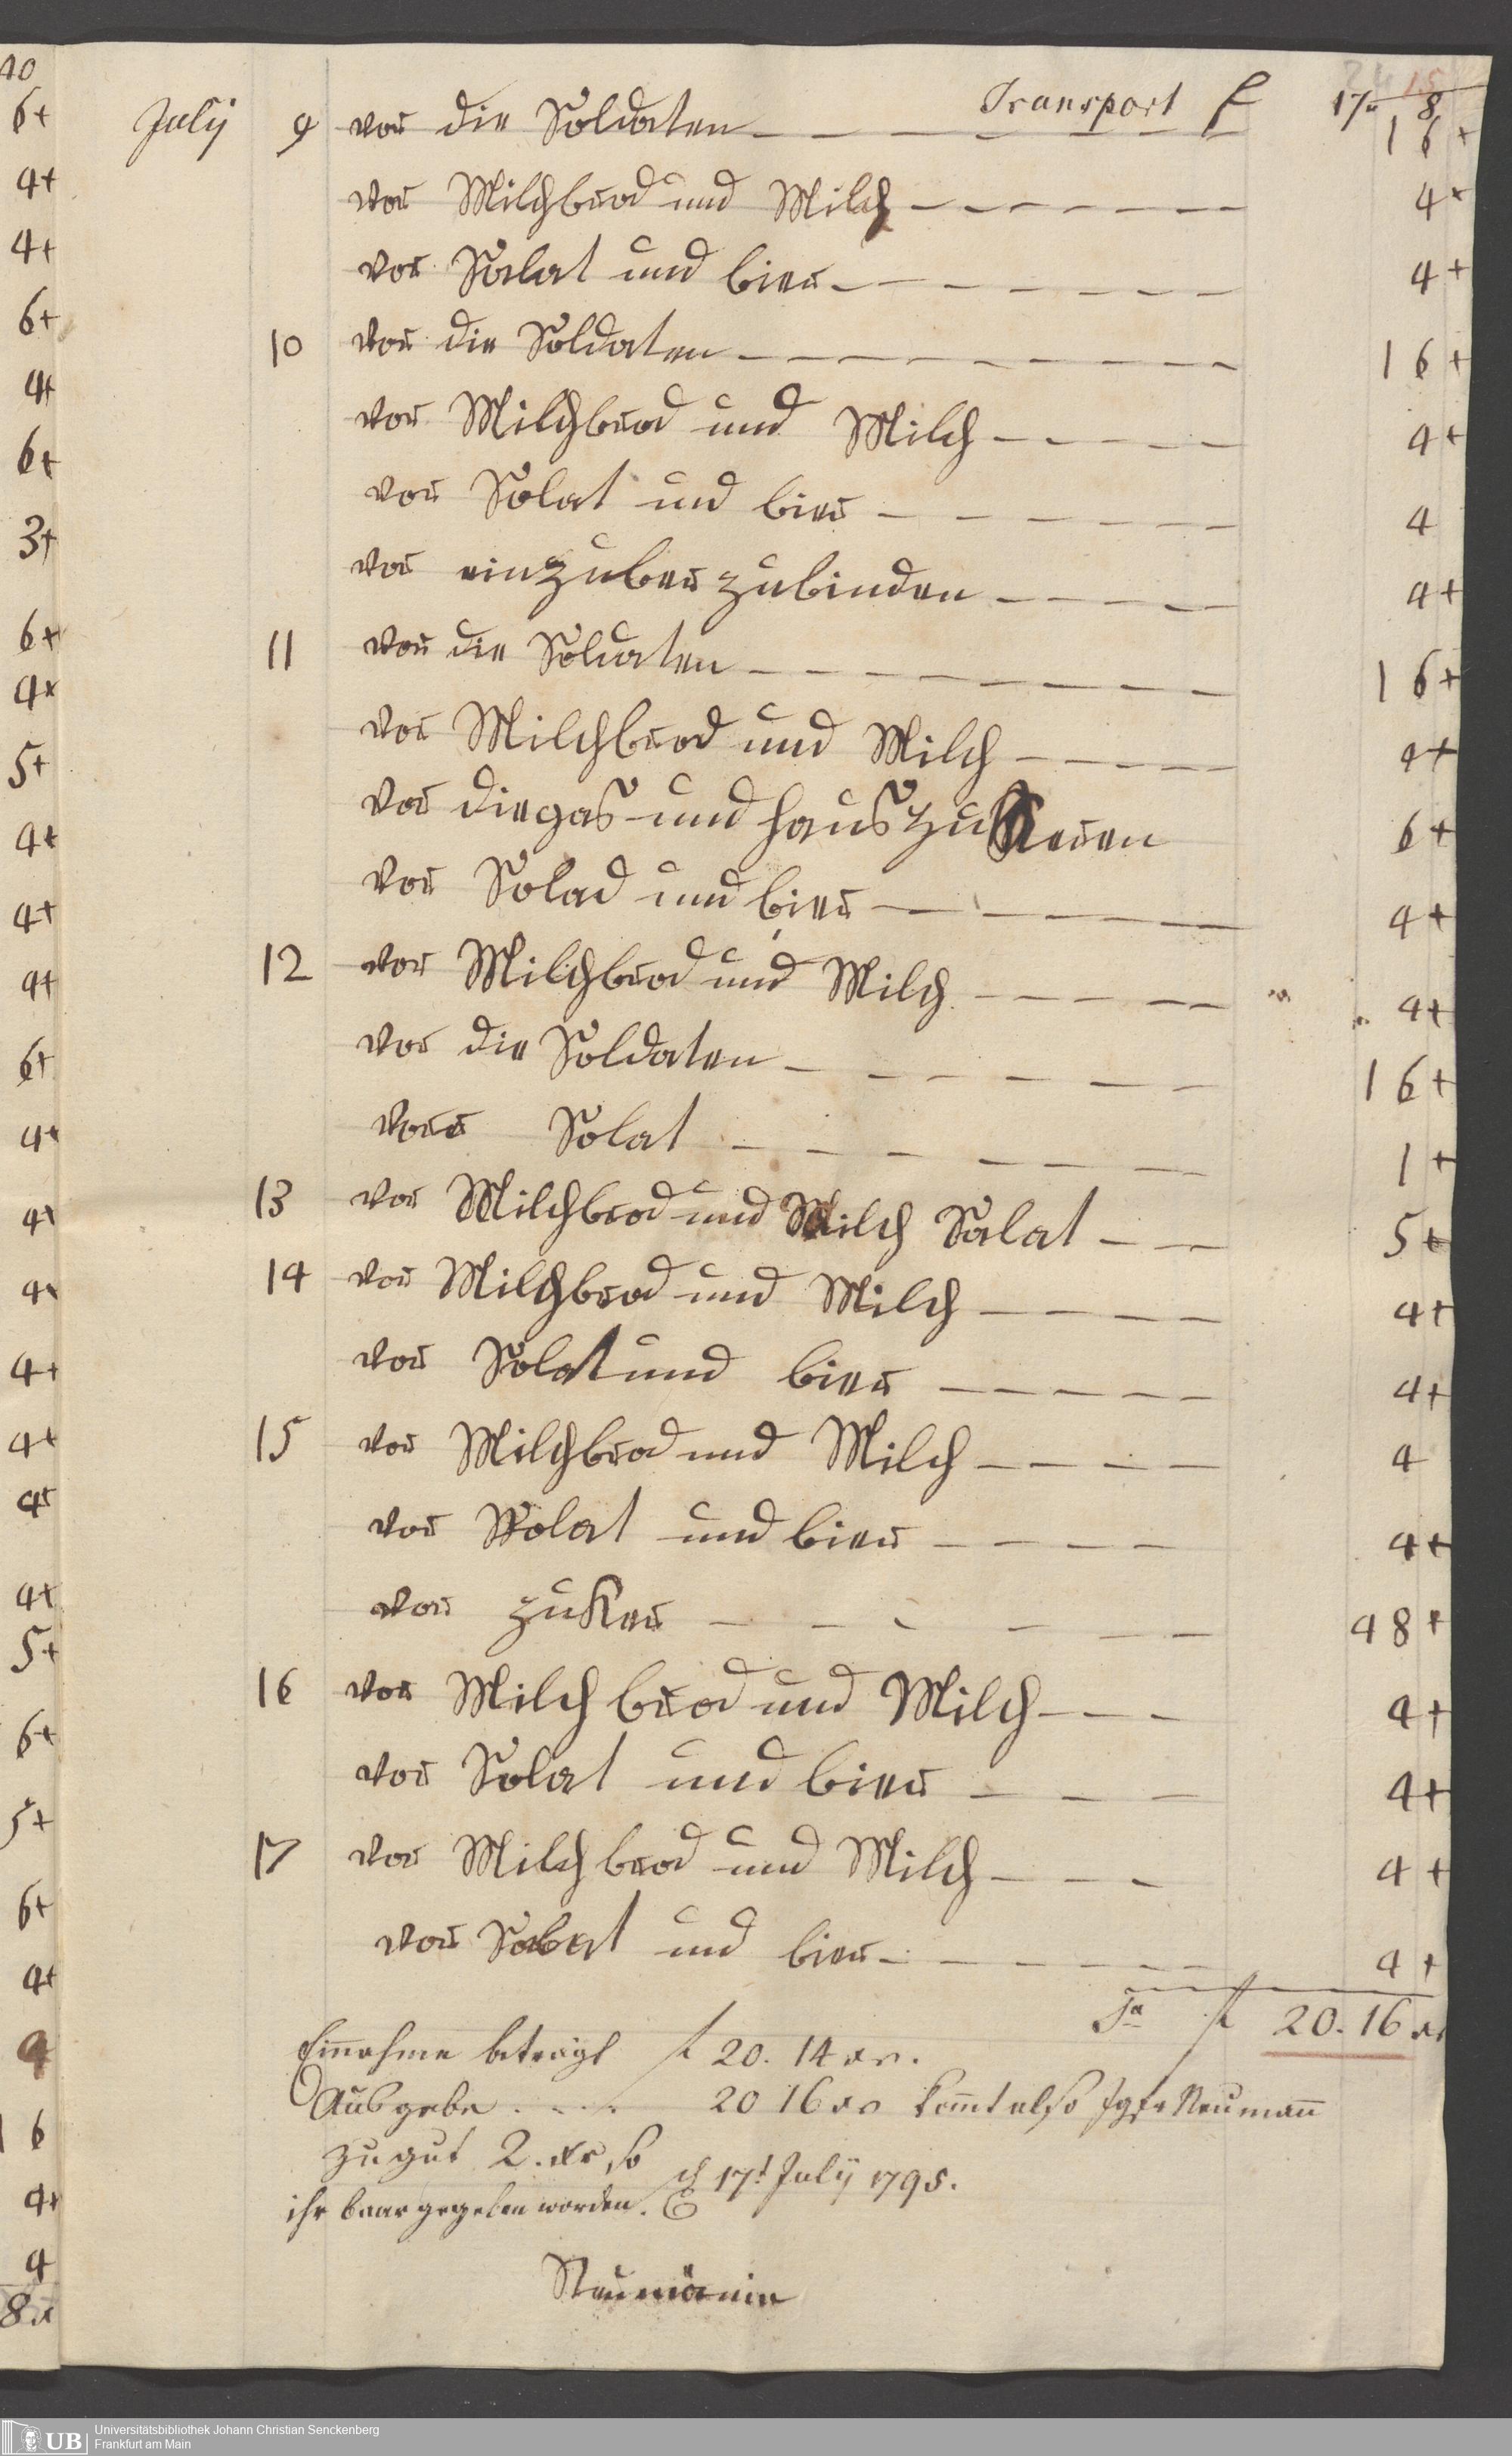 10
24 15
Transport f 17. 8
July 9 vor die Soldaten 16 +
vor Milchbrod und Milch 4 +
vor Salat und bier 4 +
10 vor die Soldaten 16 +
vor Milchbrod und Milch 4 +
vor Solat und bier 4
vor ein zuber zubinden 4 +
11 vor die Soldaten 16 +
vor Milchbrod und Milch 4 +
vor die gas und haus zu 6 +
vor Solad und bier 4 +
12 vor Milchbrod und Milch 4 +
vor die Soldaten 16 +
vor Solat 1 +
13 vor Milchbrod und Milch Salat 5 +
14 vor Milchbrod und Milch 4 +
vor Solat und bier 4 +
15 vor Milchbrod und Milch 4
vor Solat und bier 4 +
vor zuker 48 +
16 vor Milchbrod und Milch 4 +
vor Solat und bier 4 +
17 vor Milchbrod und Milch 4 +
vor Salat und bier 4 +
Sa f 20. 16 xr
Einnahme beträgt f 20. 14 xr.
Ausgabe .... 20 16 xr komt also Jgfr Neumann
zu gut 2. xr so
ihr baar gegeben worden. d 17t July 1795.
Neumänin
6+
4+
4+
6+
4+
6+
3+
6+
4+
5+
4+
4+
4+
6+
4+
4+
4+
4+
4+
4+
4+
5+
6+
5+
6+
4+
4
16
4+
4
8 x
UB Universitätsbibliothek Johann Christian Senckenberg
Frankfurt am Main